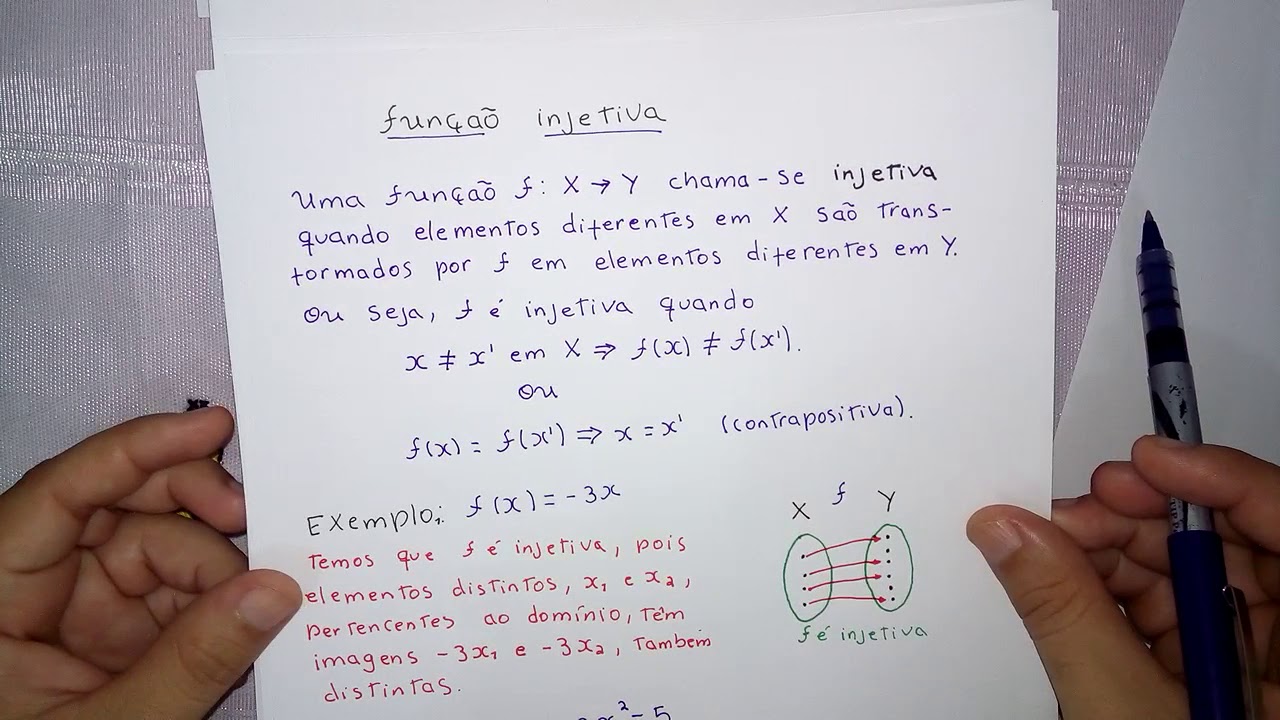 função injetiva
Uma função f: X → Y chama-se injetiva
quando elementos diferentes em X são trans-
formados por f em elementos diferentes em Y.
Ou seja, f é injetiva quando
x ≠ x' em X ⇒ f(x) ≠ f(x').
Ou
f(x) = f(x') ⇒ x = x' (contrapositiva).
Exemplo: f(x) = -3x
Temos que f é injetiva, pois
elementos distintos, x₁ e x₂,
pertencentes ao domínio, têm
imagens -3x₁ e -3x₂, também
distintas.
X f Y
f é injetiva
x² - 5